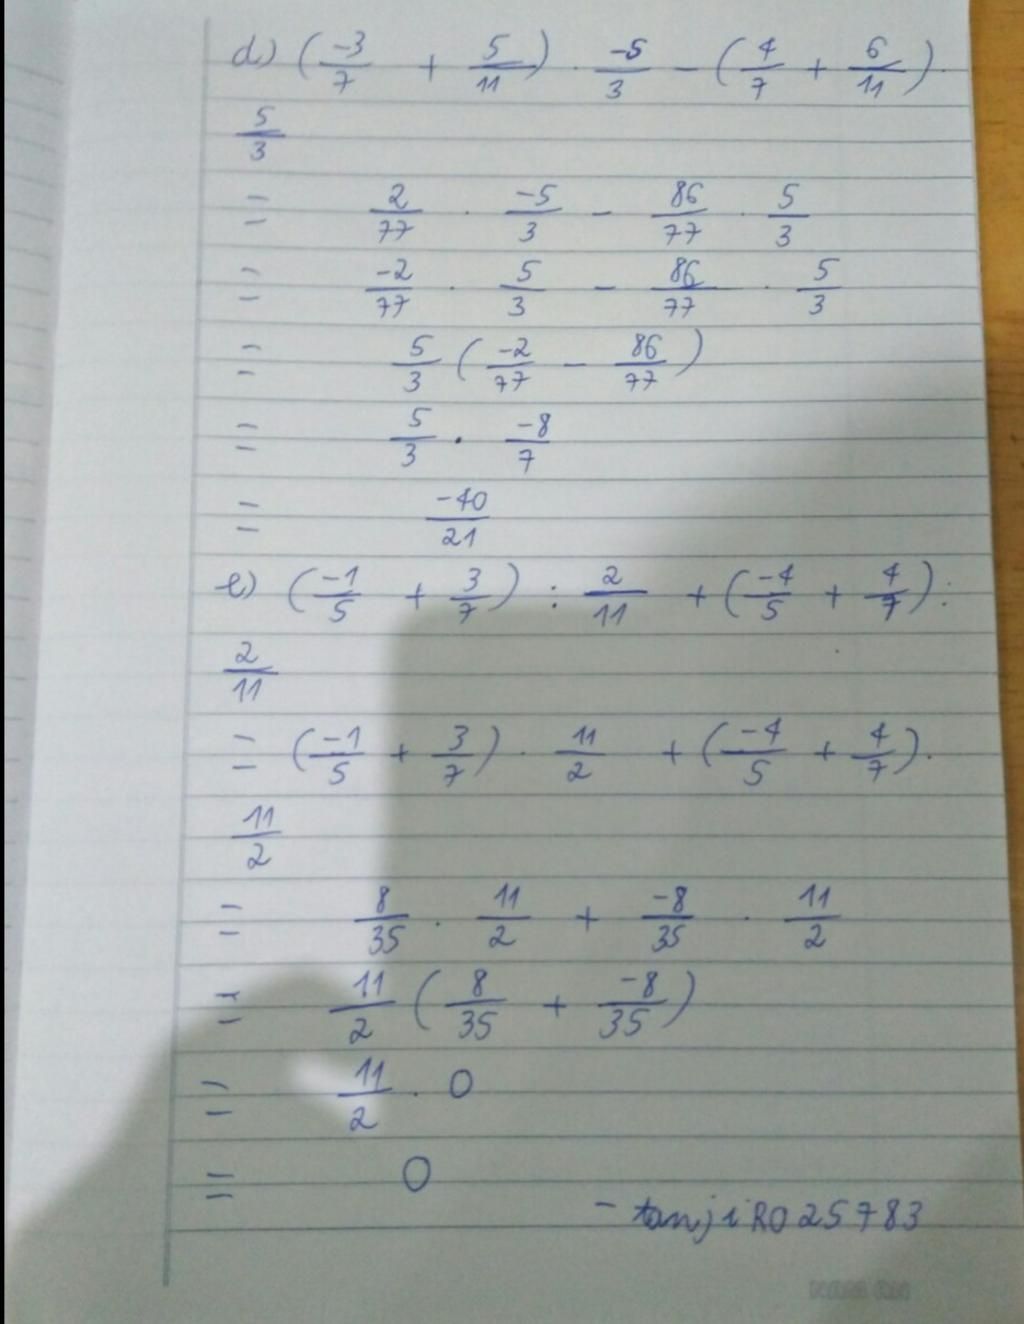 d) (-3/7 + 5/11) . -5/3 - (4/7 + 6/11) .
5/3
= 2/77 . -5/3 - 86/77 . 5/3
= -2/77 . 5/3 - 86/77 . 5/3
= 5/3 (-2/77 - 86/77)
= 5/3 . -8/7
= -40/21
e) (-1/5 + 3/7) : 2/11 + (-4/5 + 4/7) :
2/11
= (-1/5 + 3/7) . 11/2 + (-4/5 + 4/7) .
11/2
= 8/35 . 11/2 + -8/35 . 11/2
= 11/2 (8/35 + -8/35)
= 11/2 . 0
= 0
- tanjiRO25783